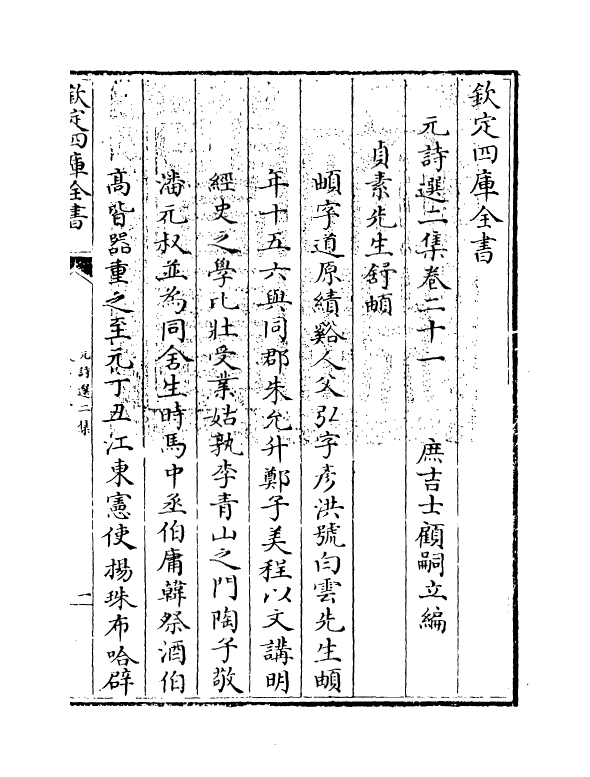 欽定四庫全書
元詩選二集卷二十一　　庶吉士顧嗣立編
貞素先生舒頔
頔字道原績谿人父弘字彥洪號白雲先生頔
年十五六與同郡朱允升鄭子美程以文講明
經史之學比壯受業姑孰李青山之門陶子敬
潘元叔並為同舍生時馬中丞伯庸韓祭酒伯
高皆器重之至元丁丑江東憲使揚珠布哈辟
欽定四庫全書
元詩選二集
一